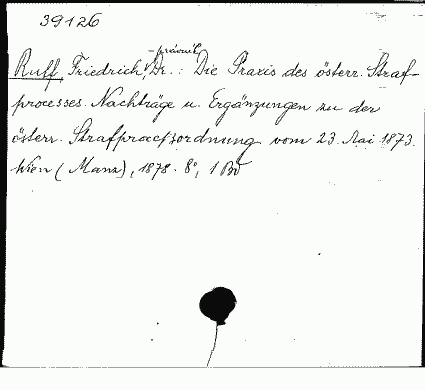 39126
-právník
Ruff, Friedrich, Dr.: Die Praxis des österr. Straf-
processes. Nachträge u. Ergänzungen zu der
österr. Strafproceßordnung vom 23. Mai 1873.
Wien (Manz), 1878. 8°, 1 Bd